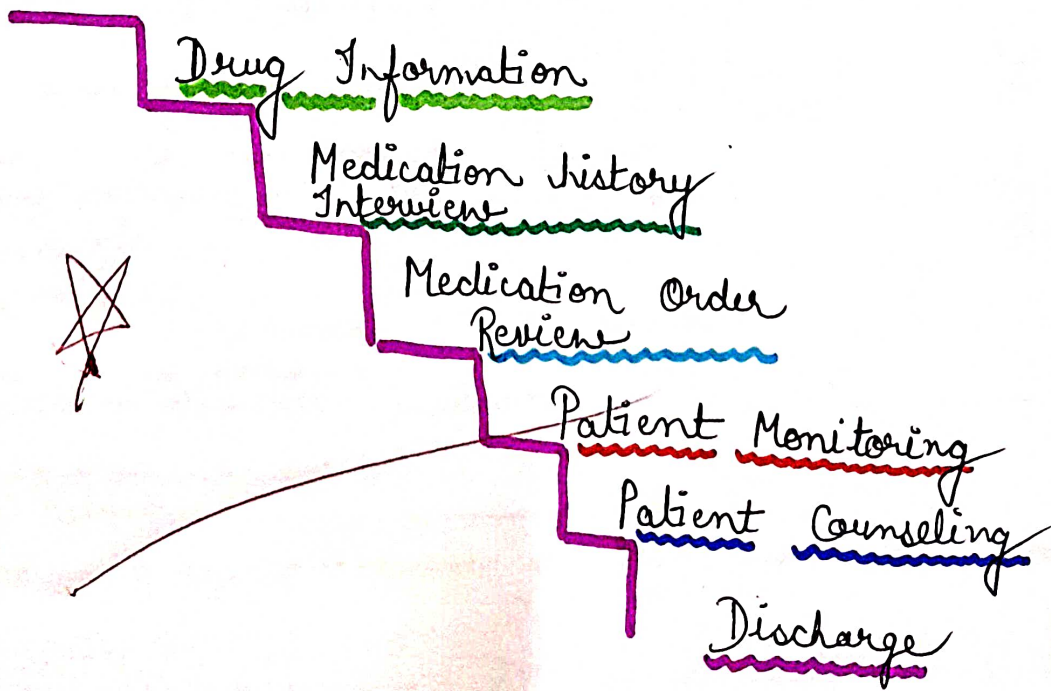 Drug Information
Medication history
Interview
Medication Order
Review
Patient Monitoring
Patient Counseling
Discharge